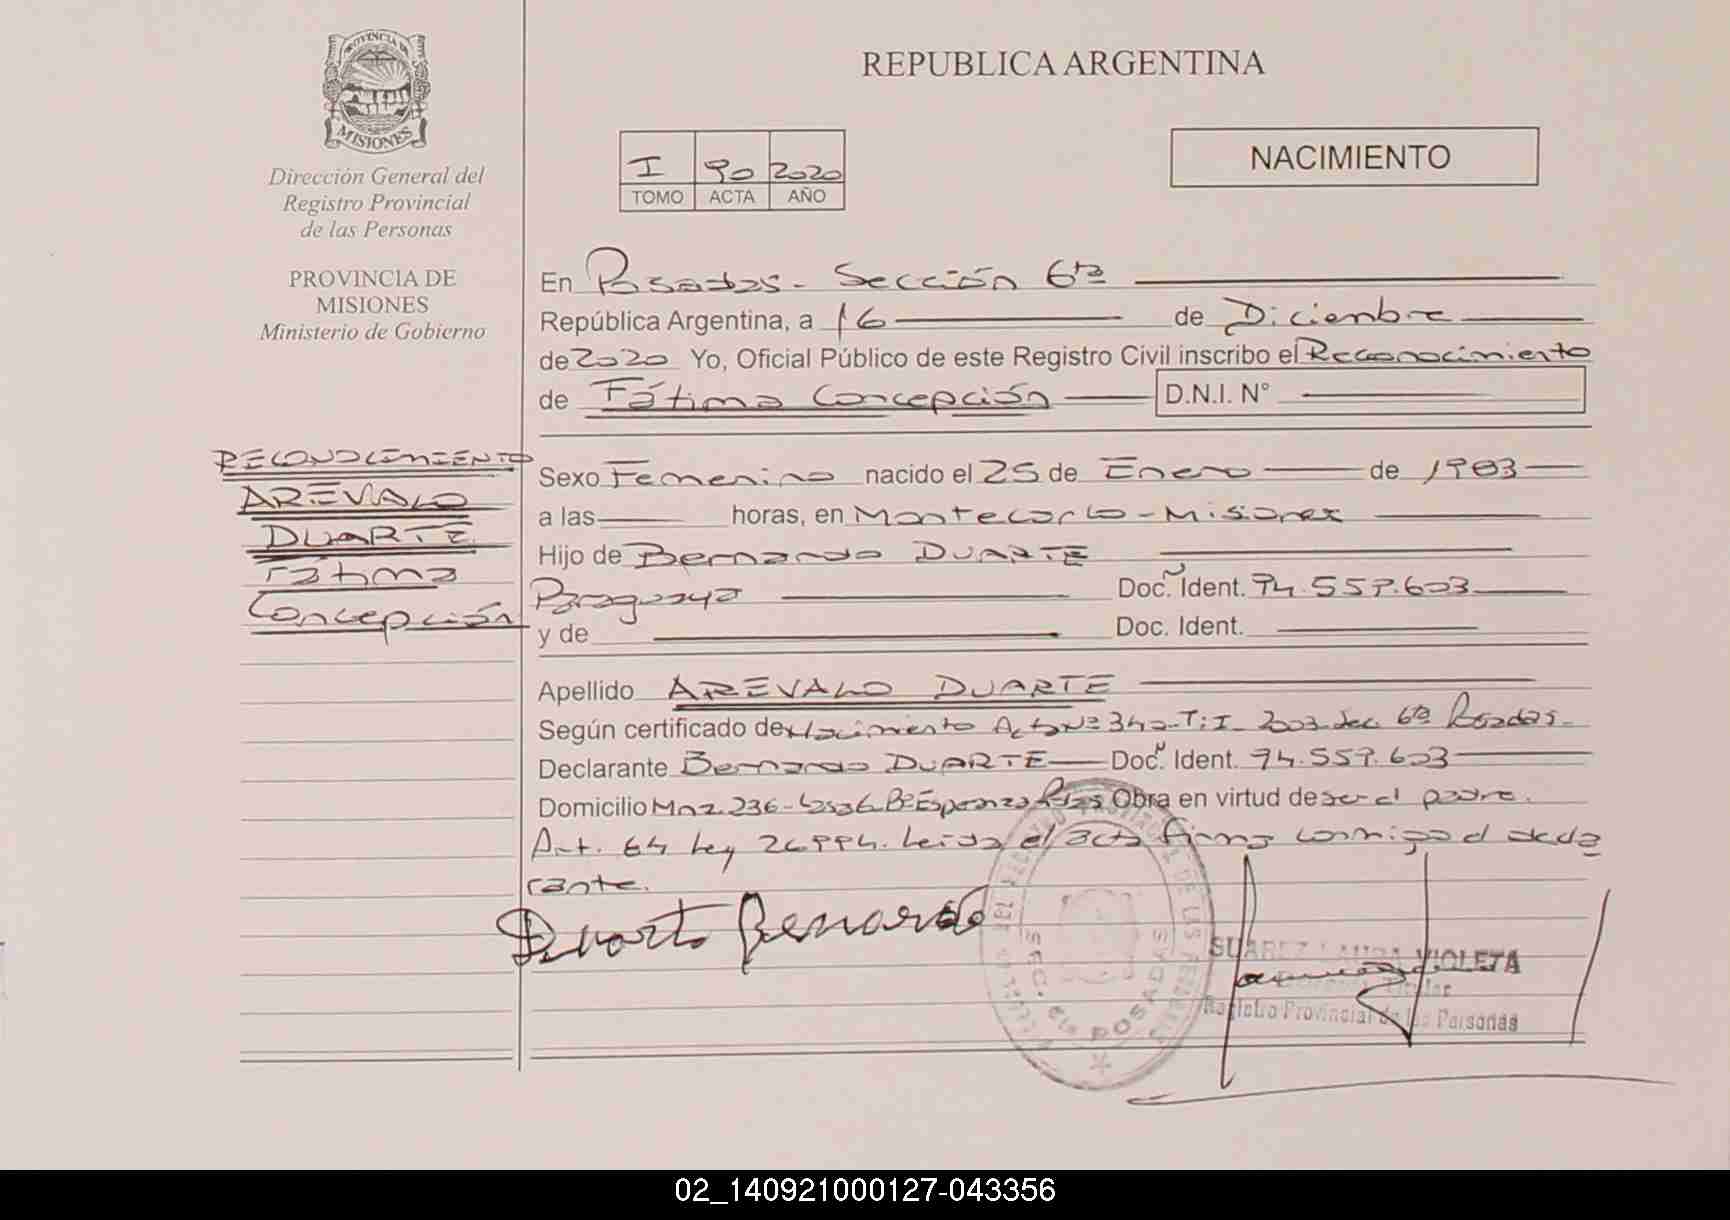 REPUBLICA ARGENTINA
PROVINCIA DE
MISIONES
Dirección General del
Registro Provincial
de las Personas
PROVINCIA DE
MISIONES
Ministerio de Gobierno
I 90 2020
TOMO ACTA AÑO
NACIMIENTO
En Posadas - Sección 6ta
República Argentina, a 16 de Diciembre
de 2020 Yo, Oficial Público de este Registro Civil inscribo el Reconocimiento
de Fátima Concepción D.N.I. N°
RECONOCIMIENTO
AREVALO
DUARTE
Fátima
Concepción
Sexo Femenino nacido el 25 de Enero de 1983
a las horas, en Montecarlo - Misiones
Hijo de Bernardo DUARTE
Paraguaya Doc. Ident. 94.559.603
y de Doc. Ident.
Apellido AREVALO DUARTE
Según certificado de Nacimiento Acta Nº 342 - T: I - 2003 Sec 6ta Posadas -
Declarante Bernardo DUARTE Doc. Ident. 94.559.603
Domicilio Mnz. 236 - Bº Esperanza Pdas Obra en virtud de ser el padre.
Art. 64 Ley 26994. Leida el acta firma conmigo el decla
rante.
Duarte Bernardo
SEC. 6ta POSADAS
SUAREZ LAURA VIOLETA
Titular
Registro Provincial de las Personas
02_140921000127-043356